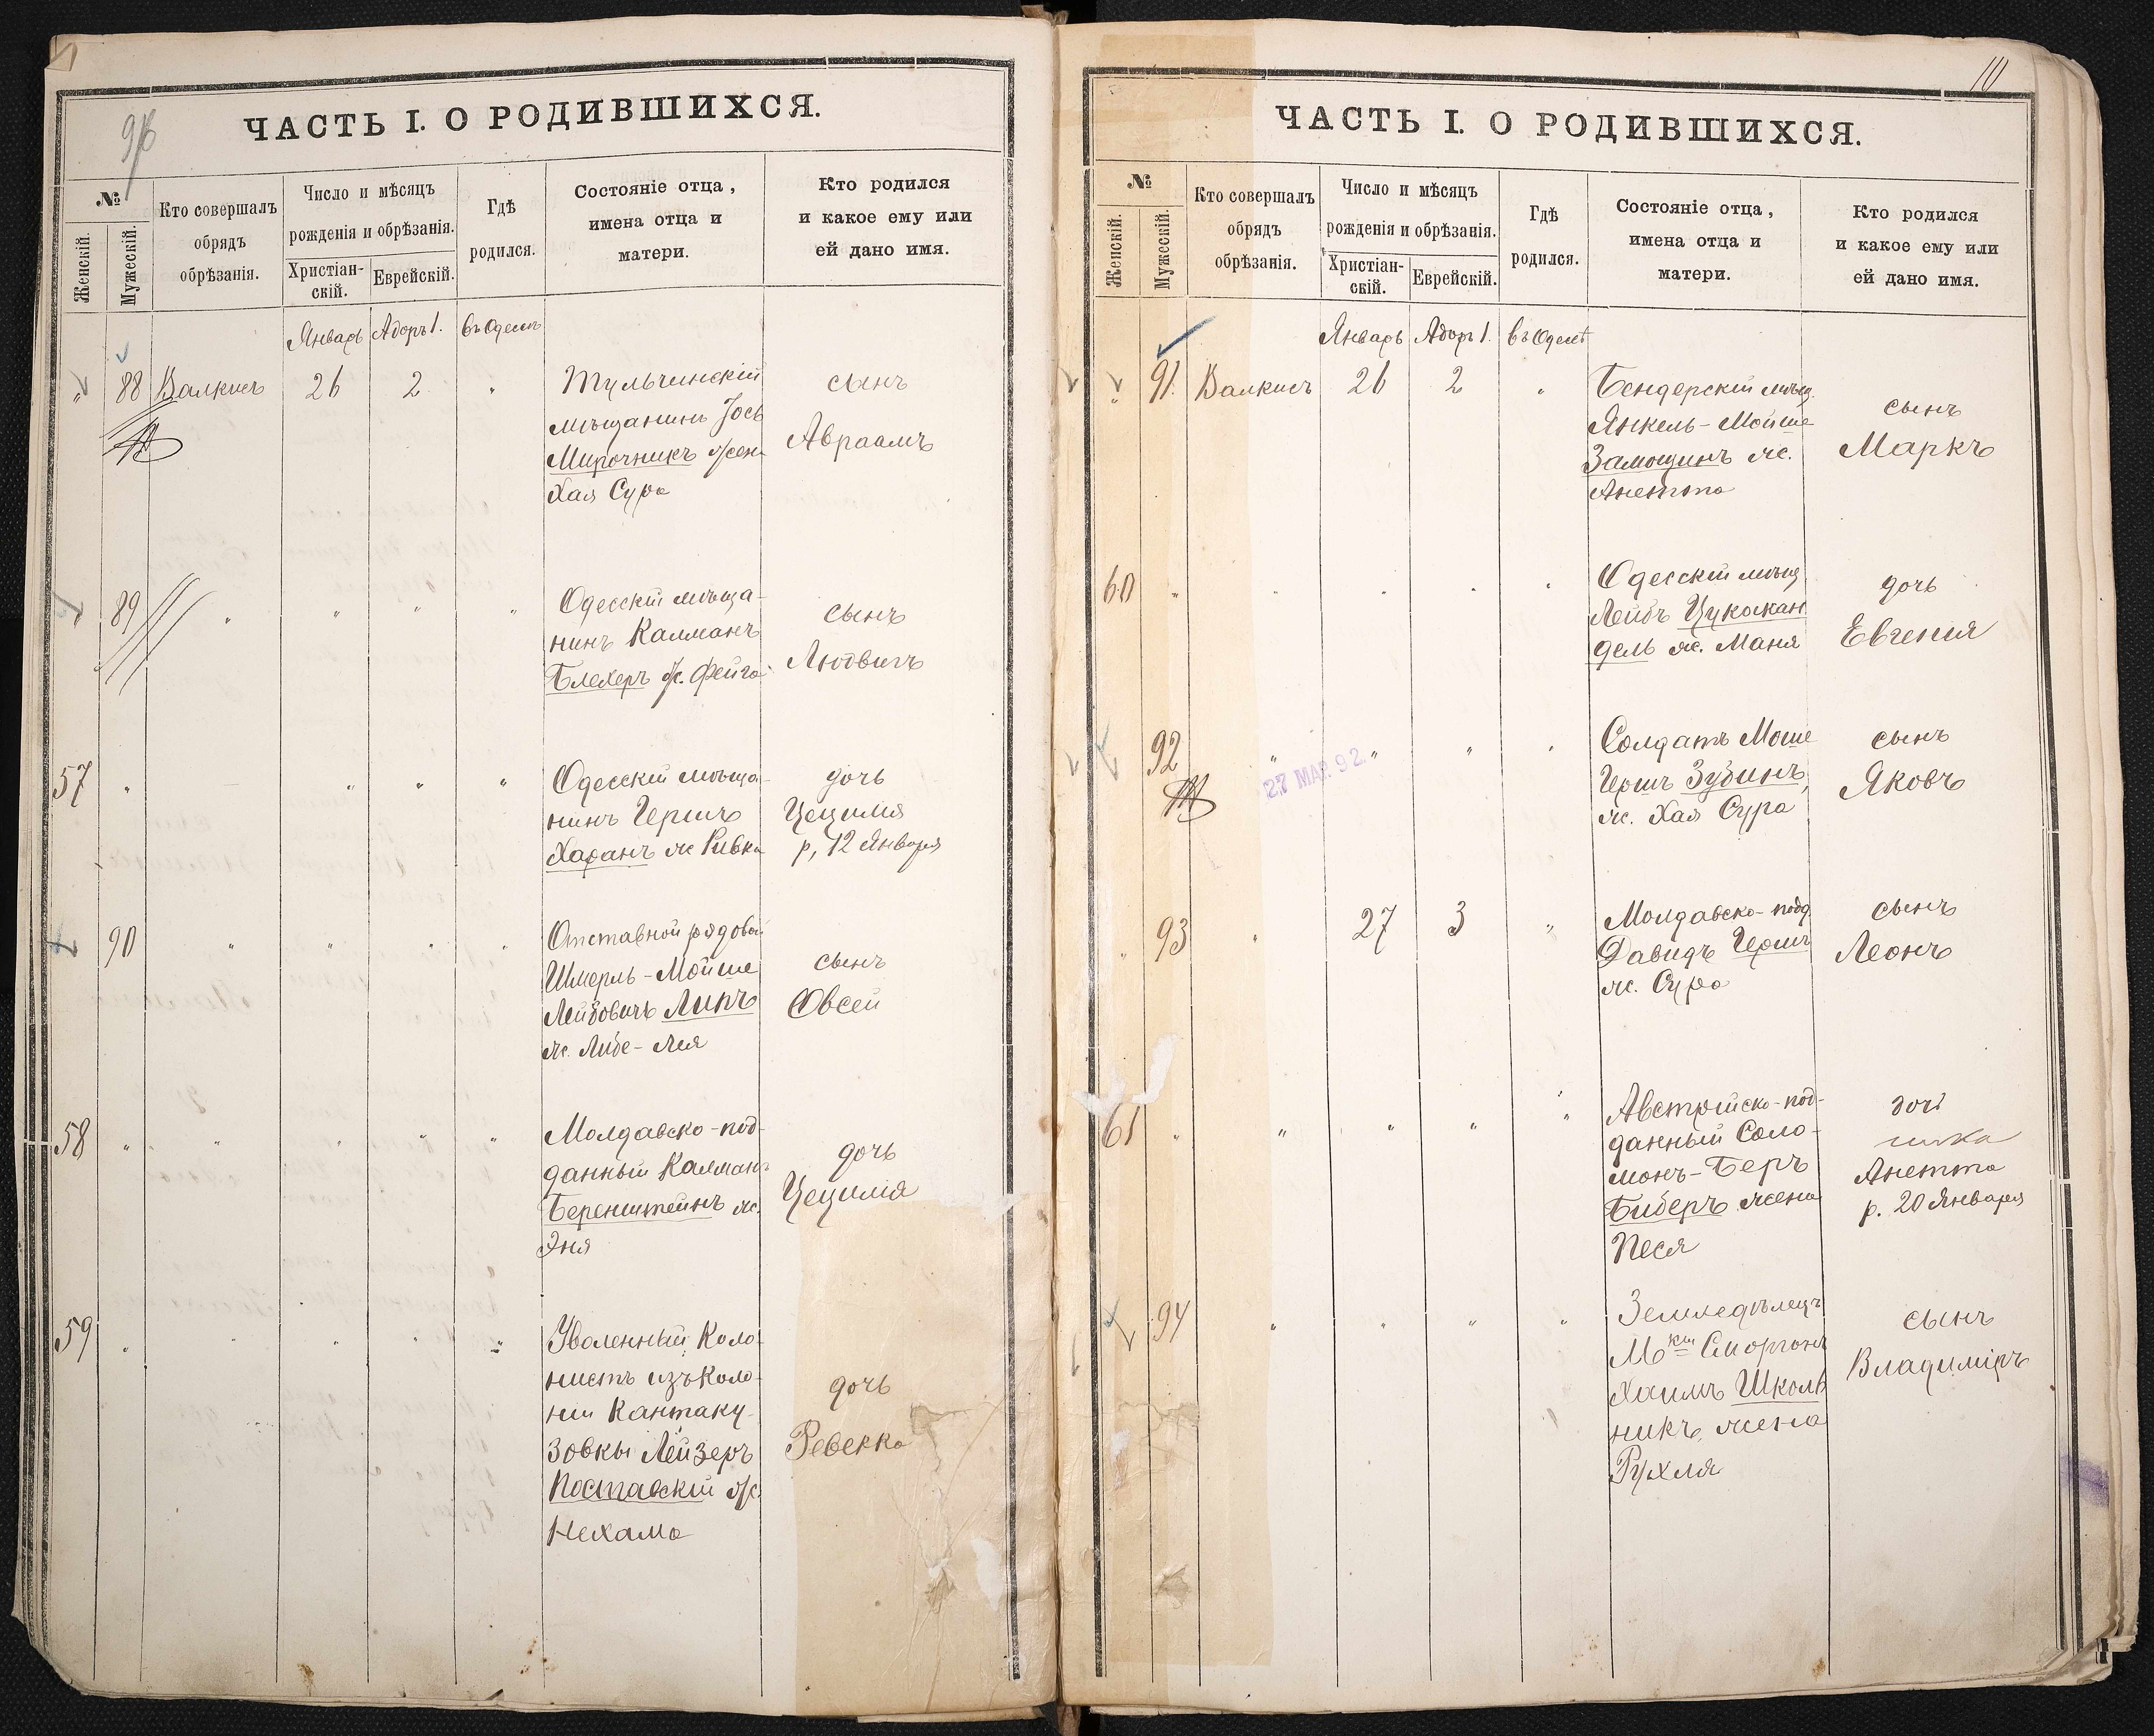 ЧАСТЬ I. О РОДИВШИХСЯ.
№
Женскій.
Мужескій.
Кто совершалъ
обрядъ
обрѣзанія.
Число и мѣсяцъ
рожденія и обрѣзанія.
Христіан-
скій.
Еврейскій.
Гдѣ
родился.
Состояніе отца,
имена отца и
матери.
Кто родился
и какое ему или
ей дано имя.
Январь Адоръ 1. въ Одессѣ
" 88 Валкисъ 26 2 "
Тульчинскій
мѣщанинъ Іось
Мирочникъ жена
Хая Сура
сынъ
Авраамъ
89 " " " "
Одесскій мѣща-
нинъ Калманъ
Блехеръ ж. Фейга
сынъ
Людвигъ
57 " " " "
Одесскій мѣща-
нинъ Гершъ
Харанъ ж Ривка
дочь
Цецилія
р, 12 Января
90 " " " "
Отставной рядовой
Шмерль-Мойше
Лейбовичъ Липъ
ж. Либе-Лея
сынъ
Овсей
58 " " " " "
Молдавско-под-
данный Калманъ
Беренштейнъ ж.
Эня
дочь
Цецилія
59 " " " " "
Уволенный Коло-
нистъ изъ Коло-
ніи Кантаку-
зовки Лейзеръ
Поставскій ж.
Нехама
дочь
Ревекка
10
ЧАСТЬ I. О РОДИВШИХСЯ.
№
Женскій.
Мужескій.
Кто совершалъ
обрядъ
обрѣзанія.
Число и мѣсяцъ
рожденія и обрѣзанія.
Христіан-
скій.
Еврейскій.
Гдѣ
родился.
Состояніе отца,
имена отца и
матери.
Кто родился
и какое ему или
ей дано имя.
Январь Адоръ 1. въ Одессѣ
" 91. Валкисъ 26 2 "
Бендерскій мѣщ.
Янкель-Мойше
Замощинъ ж.
Анетта
сынъ
Маркъ
60 " " " " "
Одесскій мѣщ
Лейбъ Цукокан
дель ж. Маня
дочь
Евгенія
92 " " " "
27 МАР. 92.
Солдатъ Моше
Гершъ Зубинъ,
ж. Хая Сура
сынъ
Яковъ
" 93 " 27 3 "
Молдавско-подд
Давидъ Гершъ
ж. Сура
сынъ
Леонъ
61 " " " " "
Австрійско-под-
данный Соло-
монъ-Беръ
Биберъ жена
Песя
дочь
Анетта
р. 20 Января
94 " " " "
Земледѣлецъ
М-ка Сморгонь
Хаимъ Школь
никъ, жена
Рухля
сынъ
Владиміръ